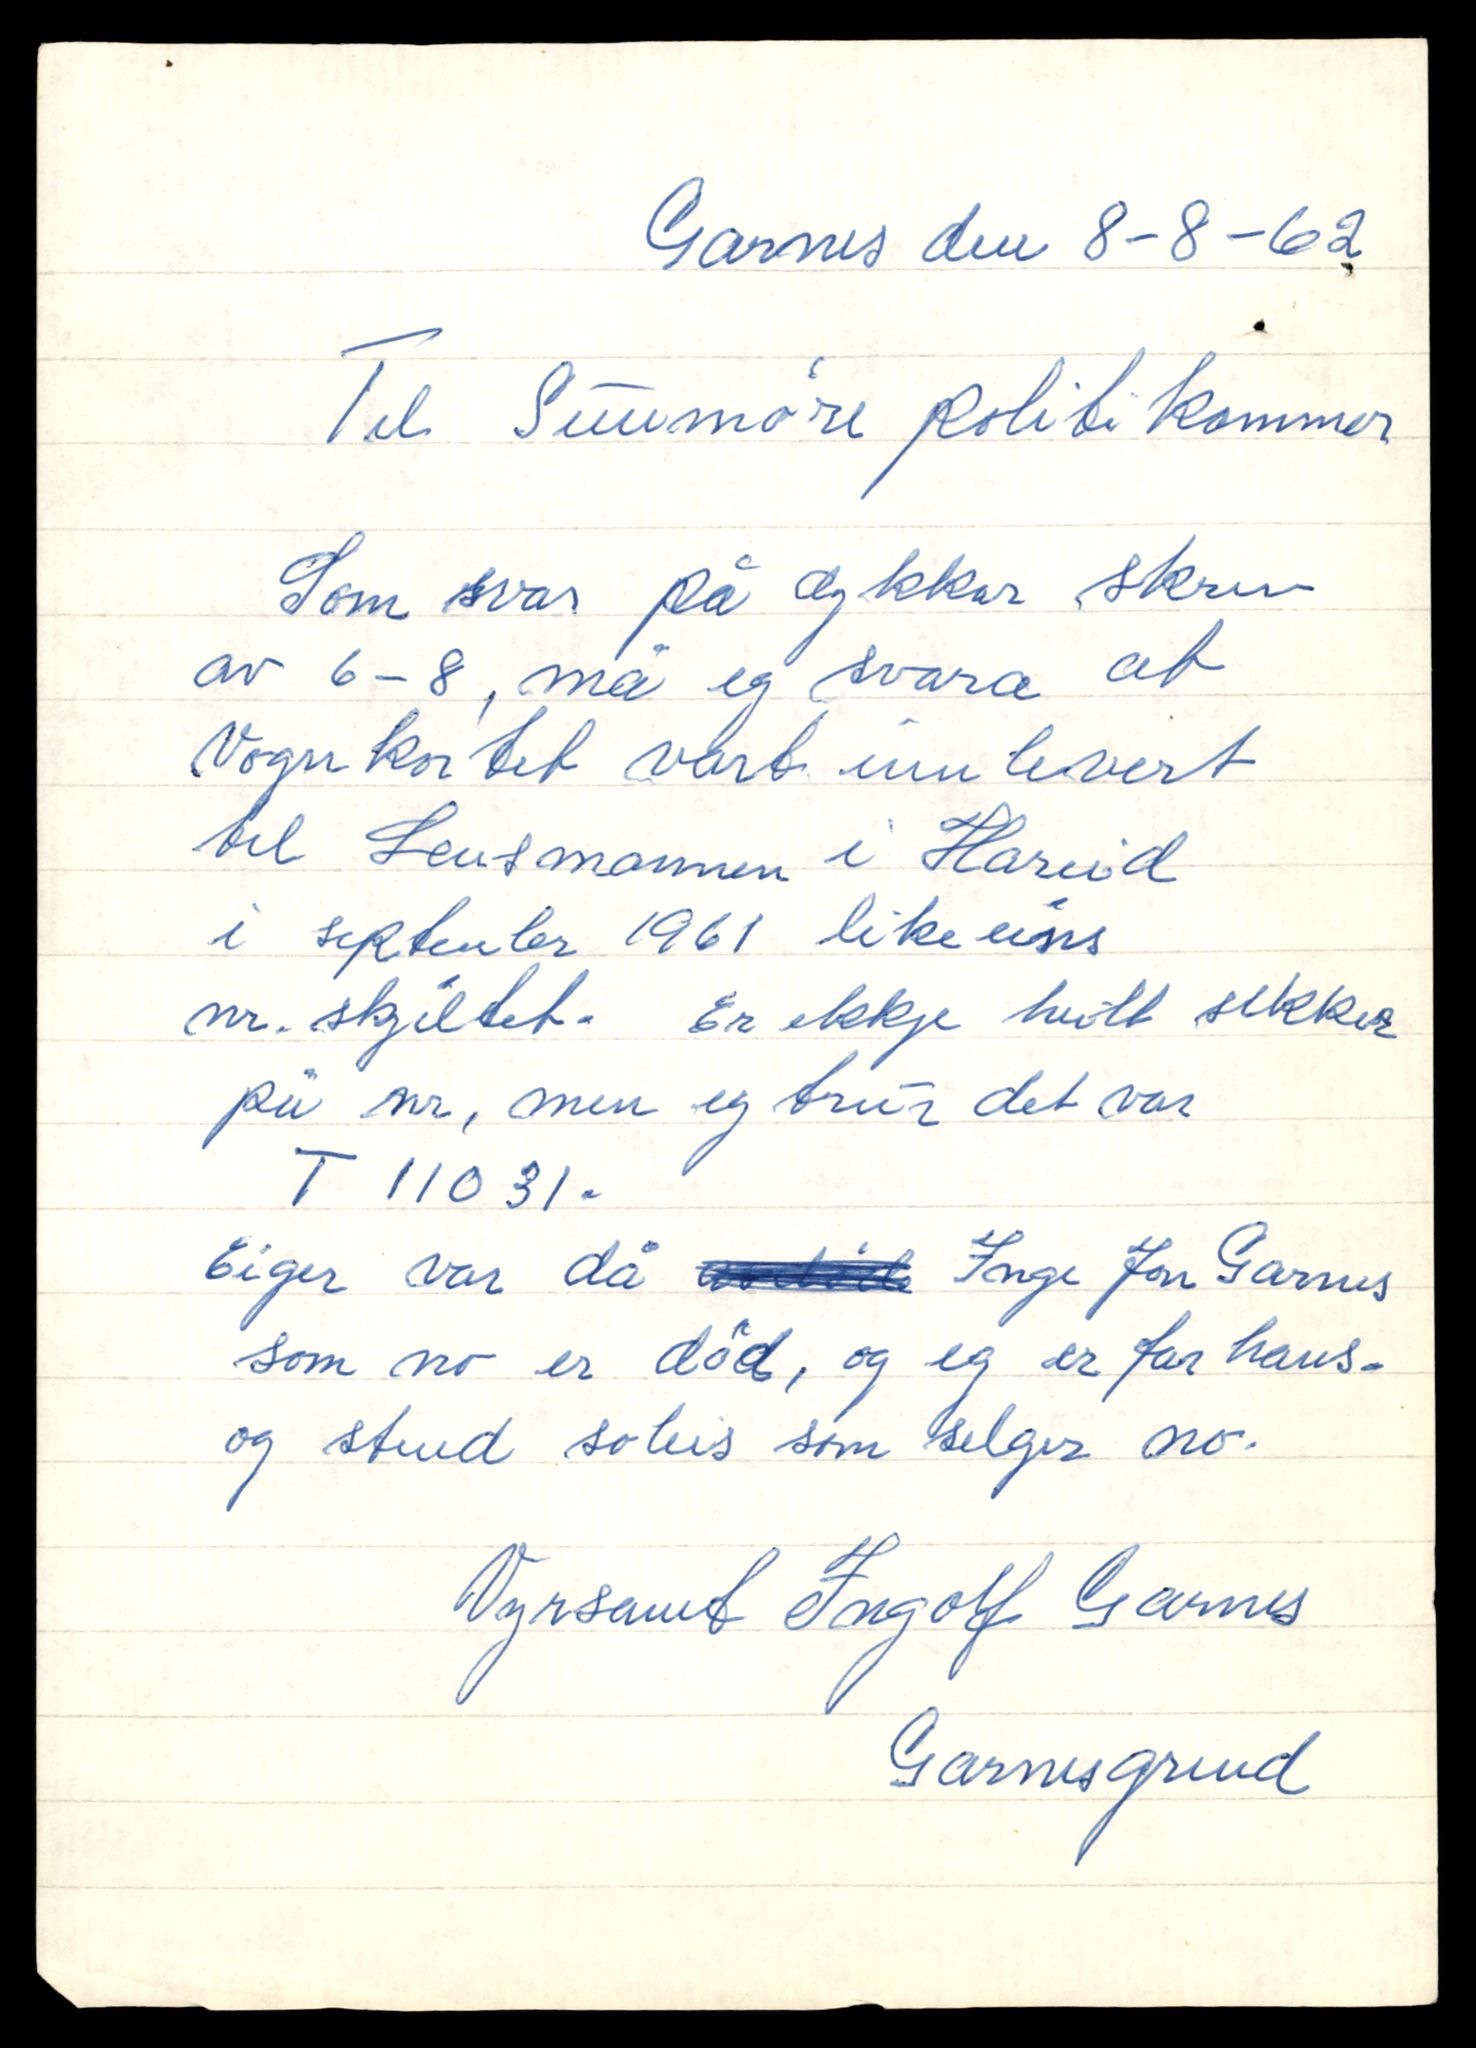 Garnes den 8-8-62
Til Sunnmöre politikammer
Som svar på dykkar skriv
av 6-8, må eg svara at
Vognkortet vart innlevert
til Lensmannen i Hareid
i septenber 1961 likeeins
nr. skjiltet. Er ikkje heilt sikker
på nr, men eg trur det var
T 11031.
Eiger var då Inge Jon Garnes
som no er död, og eg er far hans.
og stend soleis som selger no.
Vyrsamt Ingolf Garnes
Garnesgrend